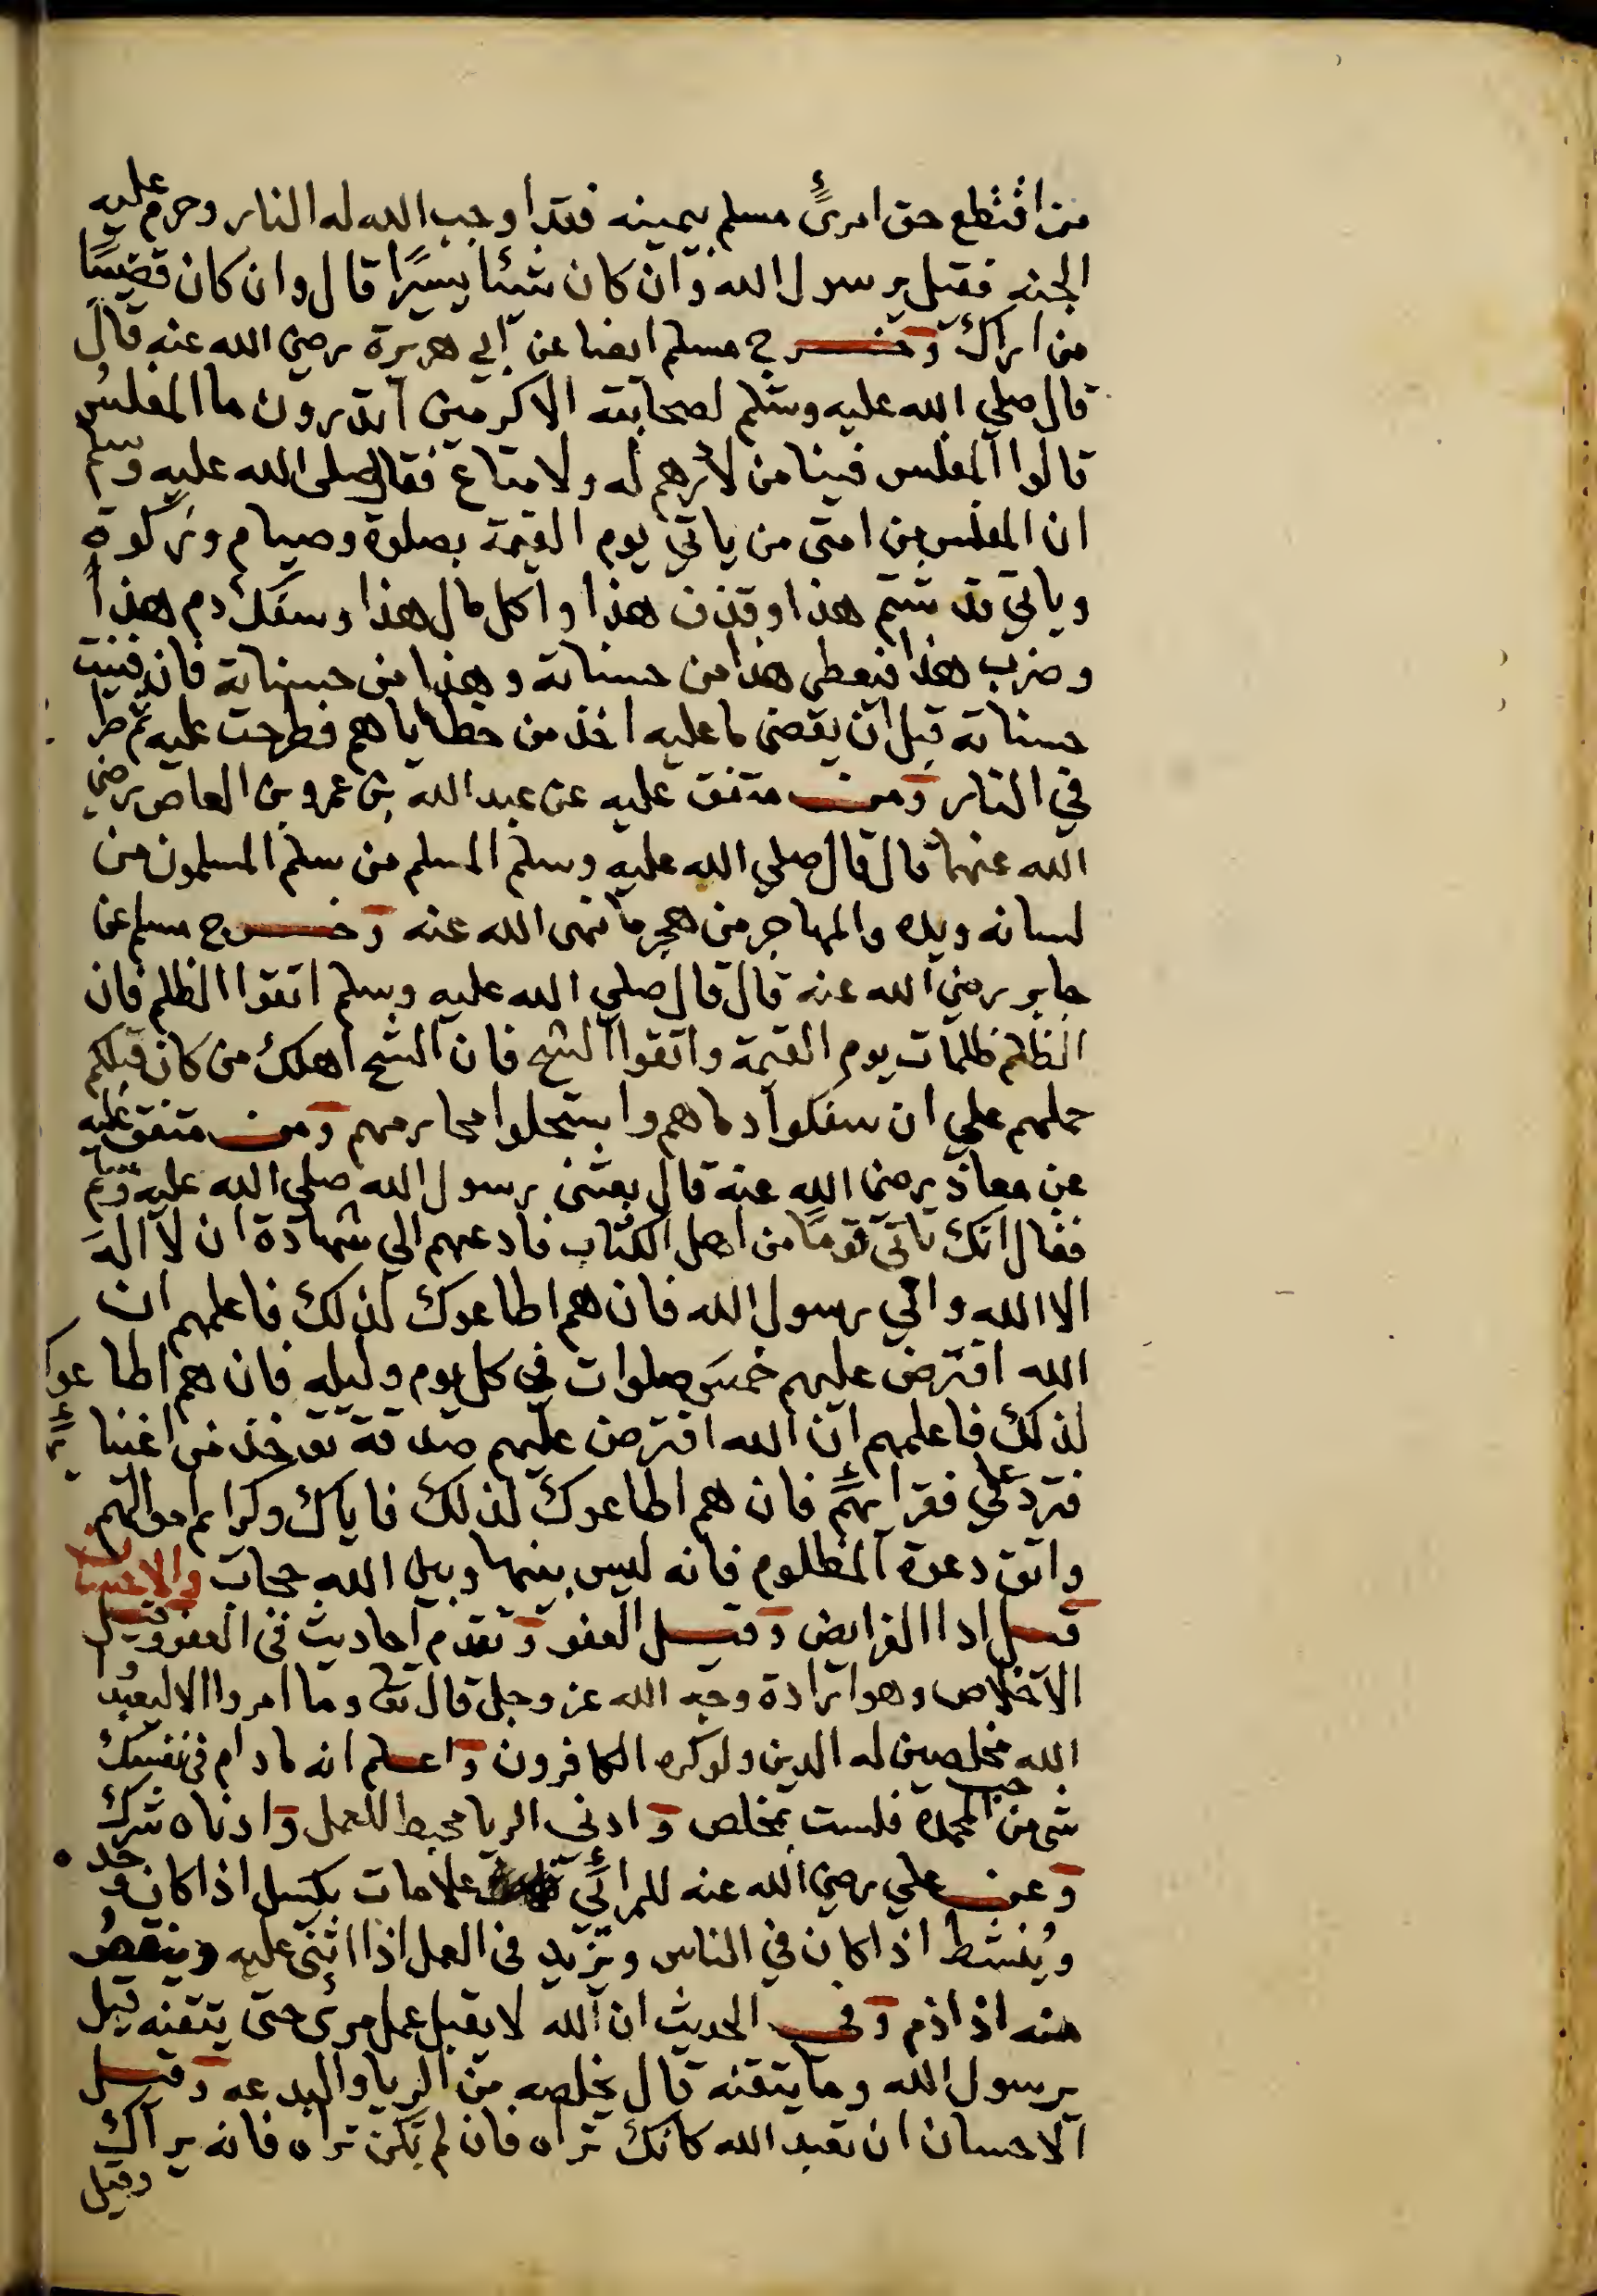 من اقتطع حق امرئ مسلم بيمينه فقد اوجب الله له النار وحرم عليه
الجنه فقيل يرسول الله وان كان شيئا يسيرا قال وان كان قضيبا
من اراك وخرج مسلم ايضا عن ابي هريرة رضي الله عنه قال
قال صلي الله عليه وسلم لصحابته الاكرمين اتدرون ما المفلس
قالوا المفلس فينا من لا درهم له ولا متاع فقال صلى الله عليه وسلم
ان المفلس من امتى من ياتي يوم القيمة بصلوة وصيام وزكوة
وياتي قد شتم هذا وقذف هذا واكل مال هذا وسفك دم هذا
وضرب هذا فيعطى هذا من حسناته وهذا من حسناته فان فنيت
حسناته قبل ان يقضى ما عليه اخذ من خطاياهم فطرحت عليه ثم طر
في النار ومن متفق عليه عن عبد الله بن عمرو بن العاص رضي
الله عنهما قال قال صلي الله عليه وسلم المسلم من سلم المسلمون من
لسانه ويده والمهاجر من هجر ما نهى الله عنه وخرج مسلم عن
جابر رضي الله عنه قال قال صلي الله عليه وسلم اتقوا الظلم فان
الظلم ظلمات يوم القيمة واتقوا الشح فان الشح اهلك من كان قبلكم
حملهم علي ان سفكوا دماهم واستحلوا محارمهم ومن متفق عليه
عن معاذ رضي الله عنه قال بعثنى رسول الله صلي الله عليه وسلم
فقال انك تاتي قوما من اهل الكتاب فادعهم الي شهادة ان لا اله
الا الله واني رسول الله فان هم اطاعوك لذلك فاعلمهم ان
الله افترض عليهم خمس صلوات في كل يوم وليله فان هم اطاعوك
لذلك فاعلمهم ان الله افترض عليهم صدقة توخذ من اغنيا
فترد علي فقرائهم فان هم اطاعوك لذلك فاياك وكرايم اموالهم
واتق دعوة المظلوم فانه ليس بينها وبين الله حجاب والاحسان
قيل ادا الفرايض وقيل العفو وتقدم احاديث فى العفو وقيل
الاخلاص وهو ارادة وجه الله عز وجل قال تعالى وما امروا الا ليعبدوا
الله مخلصين له الدين ولو كره الكافرون واعلم انه مادام فى نفسك
شى من حب المحمدة فلست بمخلص وادنى الريا محبط للعمل وادناه شرك
وعن علي رضي الله عنه للمرائي علامات يكسل اذا كان وحده
وينشط اذا كان في الناس ويزيد فى العمل اذا اثنى عليه وينقص
منه اذا ذم وفي الحديث ان الله لا يقبل عمل مرئ حتى يتقنه قيل
يرسول الله وما يتقنه قال يخلصه من الريا والبدعه وقيل
الاحسان ان تعبد الله كانك تراه فان لم تكن تراه فانه يراك
وقيل